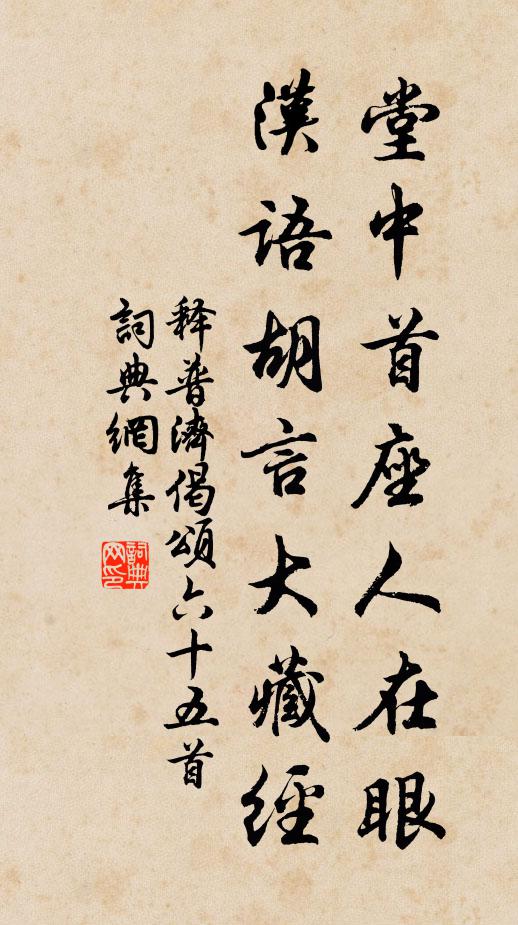 堂中首座人在眼
漢語胡言大藏經
释普濟偈頌六十五首
詞典網集
詞典网印